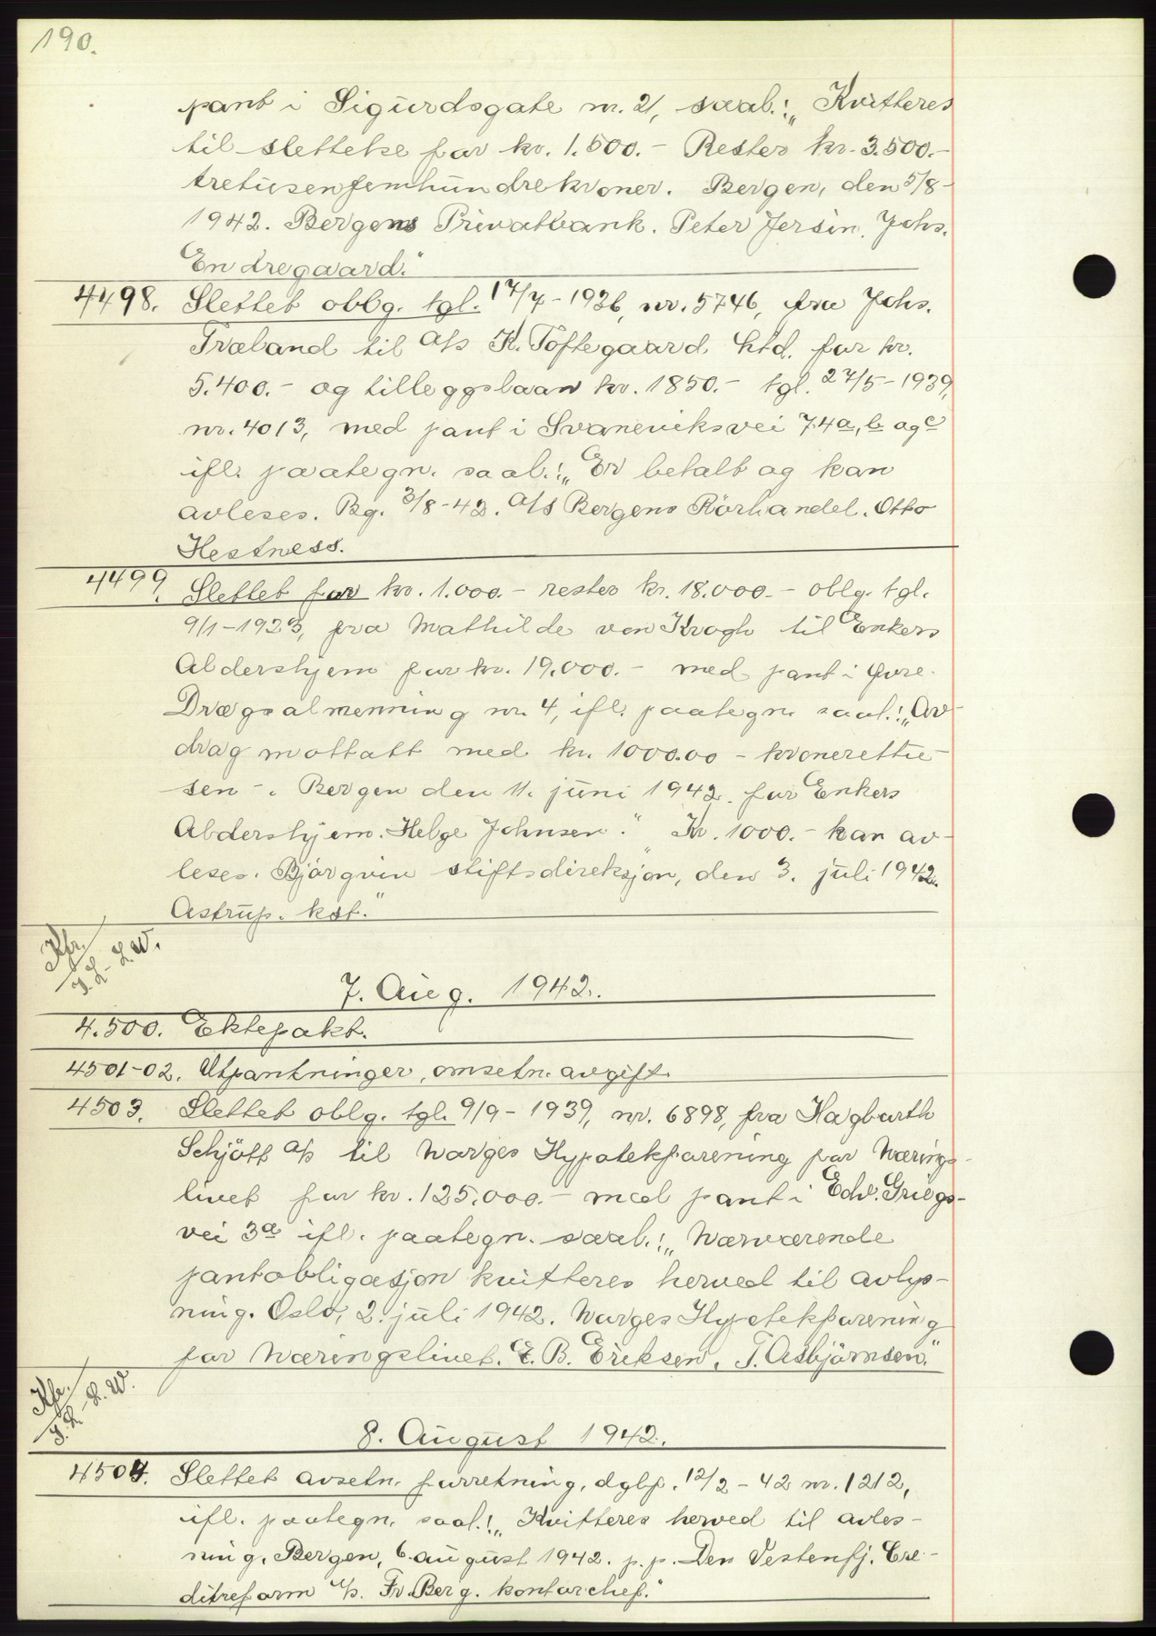 190.
pant i Sigurdsgate nr. 21, saal.: „Kvitteres
til slettelse for kr. 1.500.- Rester kr. 3.500.-
tretusenfemhundrekroner. Bergen, den 5/8-
1942. Bergens Privatbank. Peter Jersin. Johs.
Endregaard."
4498. Slettet oblg. tgl. 17/7-1936, nr. 5746, fra Johs.
Træland til A/s K. Toftegaard Ltd. for kr.
5.400.- og tilleggslaan kr. 1850.- tgl. 27/5-1939,
nr. 4013, med pant i Svaneviksvei 74a, b og c
ifl. paategn. saal.: „Er betalt og kan
avleses. Bg. 3/8-42. A/S Bergens Rörhandel. Otto
Hestness.
4499. Slettet for kr. 1.000.- rester kr. 18.000.- oblg. tgl.
9/1-1923, fra Mathilde von Krogh til Enkers
Aldershjem for kr. 19.000.- med pant i övre
Drægsalmenning nr. 4, ifl. paategn. saal.: „Av-
drag mottatt med kr. 1000.00 - kronerettu-
sen -. Bergen den 11. juni 1942. for Enkers
Aldershjem. Helge Johnsen." „Kr. 1000.- kan av-
leses. Björgvin stiftsdireksjon, den 3. juli 1942.
Astrup. kst."
Kfr.
J.L - L.W.
7. Aug. 1942.
4.500. Ektepakt.
4501-02. Utpantninger, omsetn. avgift.
4503. Slettet oblg. tgl. 9/9-1939, nr. 6898, fra Hagbarth
Schjött A/s til Norges Hypotekforening for Nærings-
livet for kr. 125.000.- med pant i Edv. Griegs-
vei 3a ifl. paategn. saal.: „Nærværende
pantobligasjon kvitteres herved til avlys-
ning. Oslo, 2. juli 1942. Norges Hypotekforening
for Næringslivet. E. B. Eriksen, T. Asbjörnsen."
Kfr.
J.L - L.W.
8. August 1942.
4504. Slettet avsetn. forretning, dgbf. 12/2-42 nr. 1212,
ifl. paategn. saal.: „Kvitteres herved til avles-
ning. Bergen, 6. august 1942. p.p. Den Vestenfj. Cre-
ditreform A/s. Fr. Berg. kontorchef."